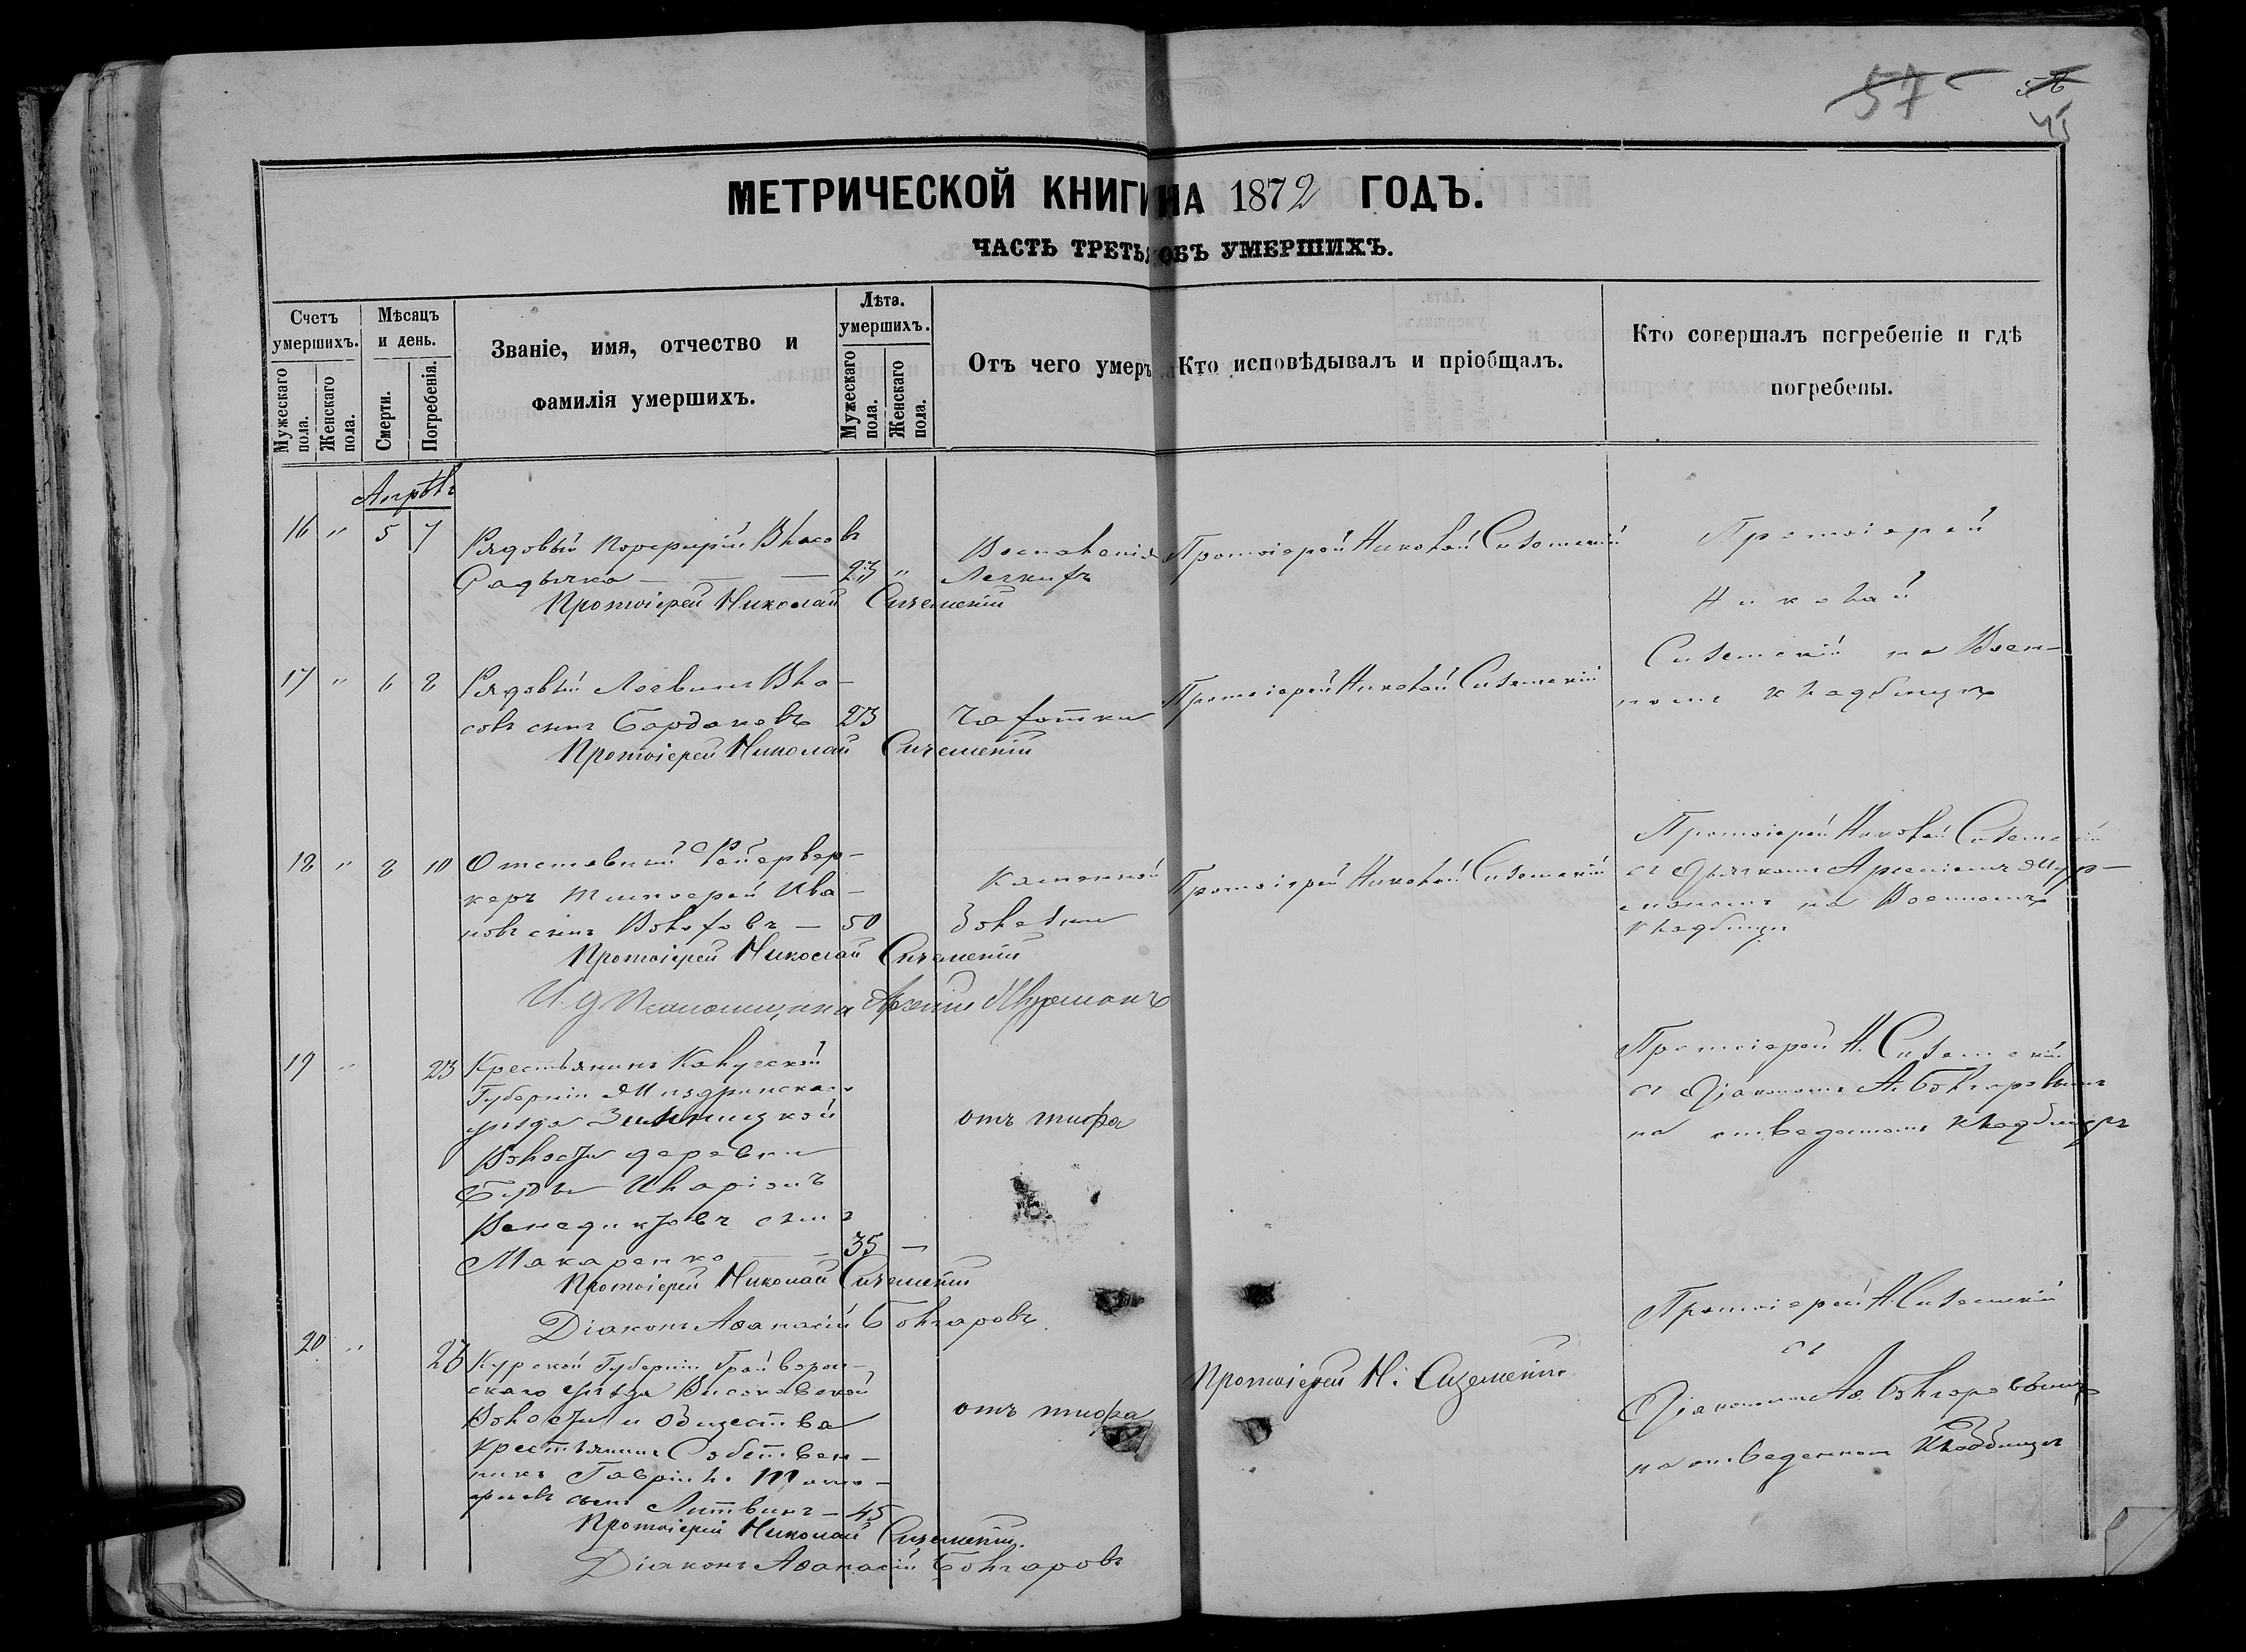 57
45
МЕТРИЧЕСКОЙ КНИГИ НА 1872 ГОДЪ.
ЧАСТЬ ТРЕТЬЯ ОБЪ УМЕРШИХЪ.
Счетъ умершихъ.
Мужескаго пола.
Женскаго пола.
Мѣсяцъ и день.
Смерти.
Погребенія.
Званіе, имя, отчество и
фамилія умершихъ.
Лѣта.
умершихъ.
Мужескаго пола.
Женскаго пола.
Отъ чего умеръ
Кто исповѣдывалъ и пріобщалъ.
Кто совершалъ погребеніе и гдѣ
погребены.
Апрѣль
16 " 5 7
Рядовый Порфирій Власовъ
Радычка — — 23 "
Воспаленія
Легкихъ
Протоіерей Николай Сиземскій
Протоіерей
Николай
Сиземскій на Воен-
номъ кладбищѣ
Протоіерей Николай Сиземскій
17 " 6 8
Рядовый Логвинъ Вла-
совъ сынъ Бордаковъ 23
Чахотки
Протоіерей Николай Сиземскій
Протоіерей Николай Сиземскій
18 " 8 10
Отставный Фейервер-
керъ Тимофей Ива-
новъ сынъ Волоховъ — 50
Каменной
болезни
Протоіерей Николай Сиземскій
Протоіерей Николай Сиземскій
съ Дьячкомъ Арсеніемъ
на Военномъ
кладбищѣ
Протоіерей Николай Сиземскій
И. д. Псаломщика Арсеній
19 " 23
Крестьянинъ Калужской
Губерніи Миздринскаго
уѣзда
Волости деревни
Буды Иларіонъ
Венедиктовъ сынъ
Макаренко — — 35 —
отъ тифа
Протоіерей Н. Сиземскій
съ Діакономъ А. Болгаровымъ
на отведенномъ кладбищѣ
Протоіерей Николай Сиземскій
Діаконъ Аѳанасій Болгаровъ
20 " 26
Курской Губерніи Грайворон-
скаго уѣзда Высоковской
Волости и Общества
Крестьянинъ Собствен-
никъ Гавріилъ
сынъ Литвинъ — 45
отъ тифа
Протоіерей Н. Сиземскій
Протоіерей Н. Сиземскій
съ
Діакономъ Аѳ. Болгаровымъ
на отведенномъ Кладбищѣ
Протоіерей Николай Сиземскій.
Діаконъ Аѳанасій Болгаровъ